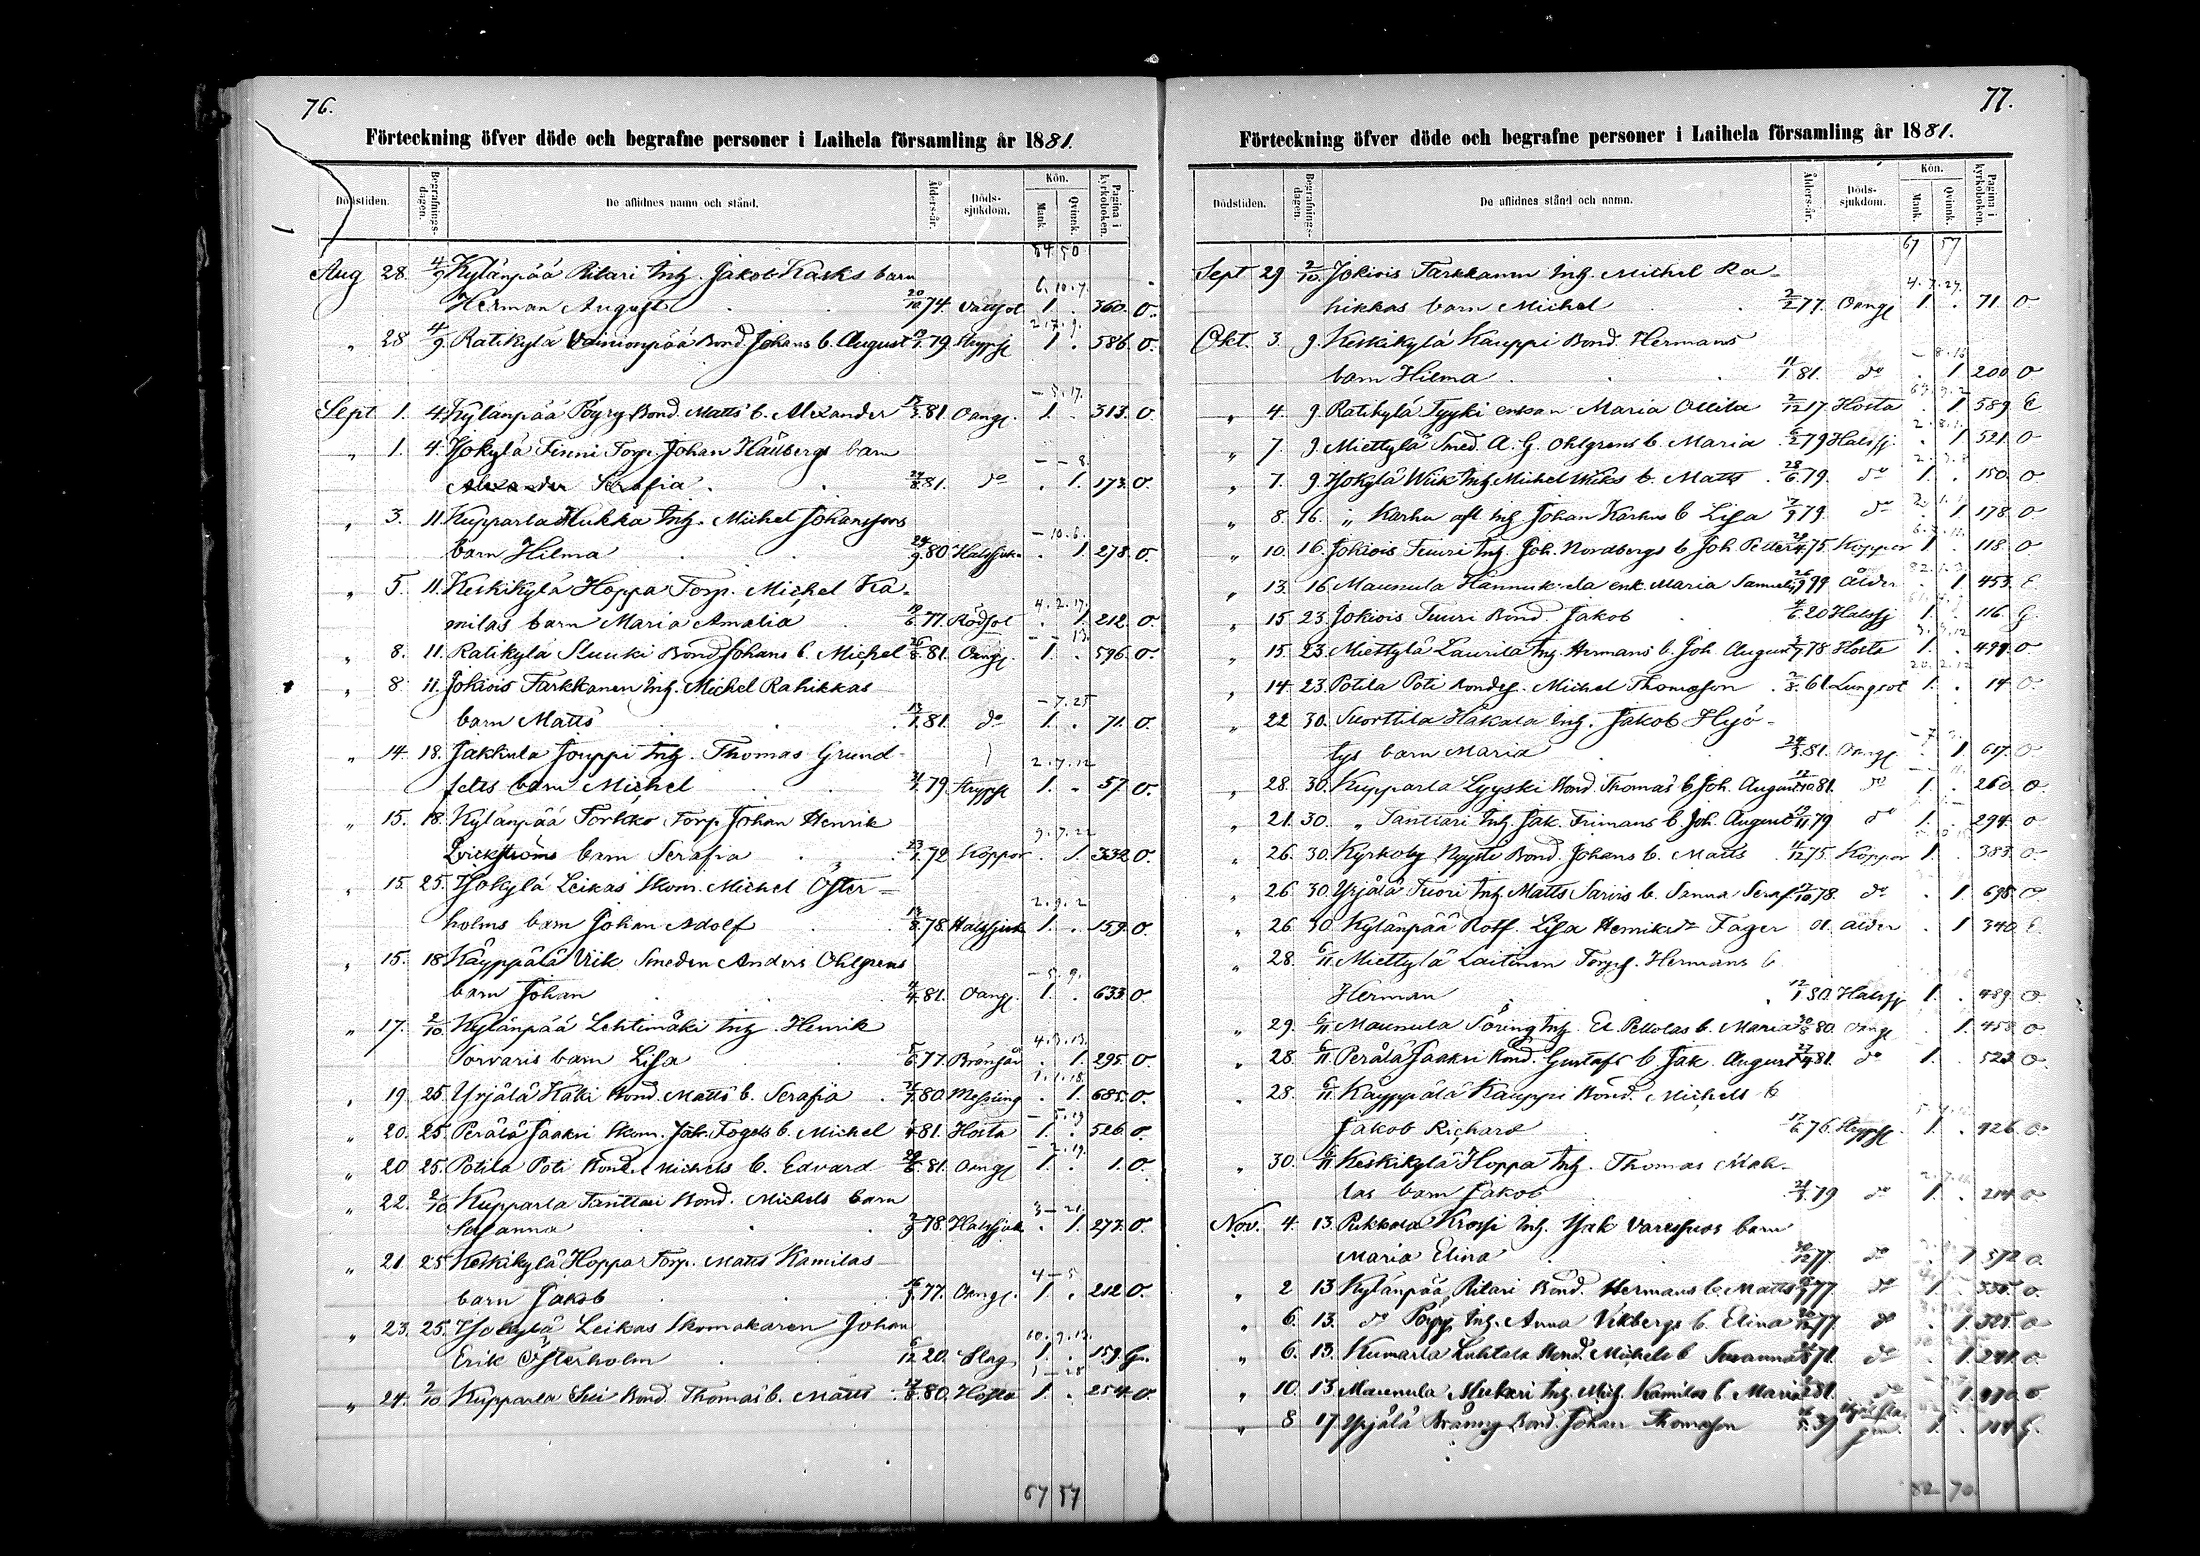 76.
Förteckning öfver döde och begrafne personer i Laihela församling år 1881.
Dödstiden. Begrafnings-dagen. De aflidnes namn och stånd. Ålders-år. Döds-sjukdom. Kön. Mank. Qvinnk. Pagina i kyrkoboken.
54 50
Aug 28. 4/9 Kylänpää Ritari Inh. Jakob Kasks barn
Herman August 20/10 74. Vattsot 1. 360. O.
" 28 4/9 Ratikylä Vainionpää Bond. Johans b. August 79 Strypsj 1. 586. O.
Sept 1. 4. Kylänpää Pöyry Bond. Matts b. Alexander 81. Oangf. 1. 313. O.
" 1. 4. Isokylä Finni Torp. Johan barn
Serafia 81. do . 1. 173. O.
" 3. 11. Kupparla Hukka Inh. Michel Johanssons
barn Hilma 80 Halssjuk. . 1. 278. O.
" 5. 11. Keskikylä Hoppa Torp. Michel Ka-
milas barn Maria Amalia 77. Rödsot . 1. 212. O.
" 8. 11. Ratikylä Bond Johans b. Michel 26/8 81. Oangf. 1. 596. O.
" 8 11. Jokiois Tarkkanen Inh. Michel Rahikkas
barn Matts 13/1 81. do 1. 71. O.
" 14. 18. Jakkula Jouppi Inh. Thomas Grund-
felts barn Michel 79 Strypsj 1. 57 O.
" 15. 18. Kylänpää Torkko Torp. Johan Henrik
barn Serafia 72 Koppor . 1. 332 O.
" 15. 25. Isokylä Leikas Skom. Michel Öster-
holms barn Johan Adolf 78. Halssjuk 1. 159. O.
" 15. 18 Käyppälä Vik Smeden Anders Ohlgrens
barn Johan 81. Oangf. 1. 633 O.
" 17. 2/10 Kylänpää Lehtimäki Inh. Henrik
Torvaris barn Lisa 5/6 77. Brännsår . 1. 295. O.
" 19. 25. Yrjälä Käki Bond. Matts b. Serafia 80. Messling . 1. 685. O.
" 20. 25. Perälä Jaakri Skom. Jak. Fogels b. Michel 81. Hosta 1. 526 O.
" 20 25. Potila Poti Bond. Michels b. Edvard 81. Oangf 1. 1. O.
" 22. 2/10 Kupparla Tanttari Bond. Michels barn
Susanna 78. Halssjuk . 1. 277. O.
" 21. 25. Keskikylä Hoppa Torp. Matts Kamilas
barn Jakob 77. Oangf. 1. 212 O.
" 23. 25. Isokylä Leikas Skomakaren Johan
Erik Österholm 6/12 20. Slag 1. 159. G.
" 24. 2/10 Kupparla Bond. Thomas b. Matts 80. Hosta 1. 254. O.
67 57
77.
Förteckning öfver döde och begrafne personer i Laihela församling år 1881.
Dödstiden. Begrafnings-dagen. De aflidnes stånd och namn. Ålders-år. Döds-sjukdom. Kön. Mank. Qvinnk. Pagina i kyrkoboken.
67 57
Sept 29 2/10 Jokiois Tarkkanen Inh. Michel Ra-
hikkas barn Michel 2/2 77. Oangf 1. 71. O
Okt. 3. 9. Keskikylä Kauppi Bond. Hermans
barn Hilma 81. do . 1. 200 O
" 4. 9. Ratikylä Tyyki enkan Maria 17 Hosta . 1 589 E
" 7. 9. Miettylä Smed. A. G. Ohlgrens b. Maria 79 Halssj . 1. 521. O
" 7. 9. Isokylä Wiik Inh. Michel Wiks b. Matts 28/6 79. do 1. 150. O
" 8. 16. " Karhu Inh Johan Karhus b Lisa 79. do . 1 178. O
" 10. 16. Jokiois Tuuri Inh. Joh. Nordbergs b Joh. Petter 75. Koppor 1. 118. O
" 13. 16. Maunula Hannuksela enk. Maria 99 Ålder . 1 453. E
" 15. 23. Jokiois Tuuri Bond. Jakob 20 Halssj 1. 116. G.
" 15. 23. Miettylä Laurila Inh. Hermans b. Joh. August 78 Hosta 1. O
" 14. 23. Potila Poti Bondes. Michel Thomasson 61 Lungsot 1. 14 O
" 22 30. Suorttila Hakala Inh. Jakob
barn Maria 24/3 81. Oangf . 1. 617. O
" 28. 30. Kupparla Bond. Thomas b Joh. August 81. do 1. 260. O
" 21. 30. " Tanttari Inh. Jak. Frimans b Joh. August 79 do 1. 294. O
" 26. 30. Kyrkoby Nyysti Bond. Johans b. Matts 75. Koppor 1. 383. O
" 26. 30. Yrjälä Tuori Inh. Matts Sarvis b. Sanna Seraf. 78. do . 1. 698. O
" 26. 30. Kylänpää Rotf. Lisa Henriksdr Fager 01. Ålder . 1 340. E
" 28. 6/11 Miettylä Laitinen Torp. Hermans b
Herman 80. Halssj 1. 489. O
" 29. 6/11 Maunula Inh. b. Maria 80. Oangf . 1. 458. O
" 28. 6/11 Perälä Jaakri Bond. Gustafs b Jak. August 81. do 1. O
" 28. 6/11 Käyppälä Kauppi Bond. Michels b
Jakob Richard 76. Strypsj 1. O
" 30. 6/11 Keskikylä Hoppa Inh. Thomas Mak-
las barn Jakob 79 do 1. O
Nov. 4. 13. Inh. barn
Maria Elina 77. do . 1 O
" 2 13 Kylänpää Ritari Bond. Hermans b. Matts 77 do 1. O
" 6. 13. do Inh. Anna Vikbergs b. Elina 77. do . 1. O
" 6. 13. Kumarla Luhtala Bond. Michels b Susanna 71. do . 1. O
" 10. 13. Maunula Inh. Mich. Kamilas b. Maria 81. do . 1. O
" 8. 17. Yrjälä Bond. Johan Thomasson 39 1. G.
82 70